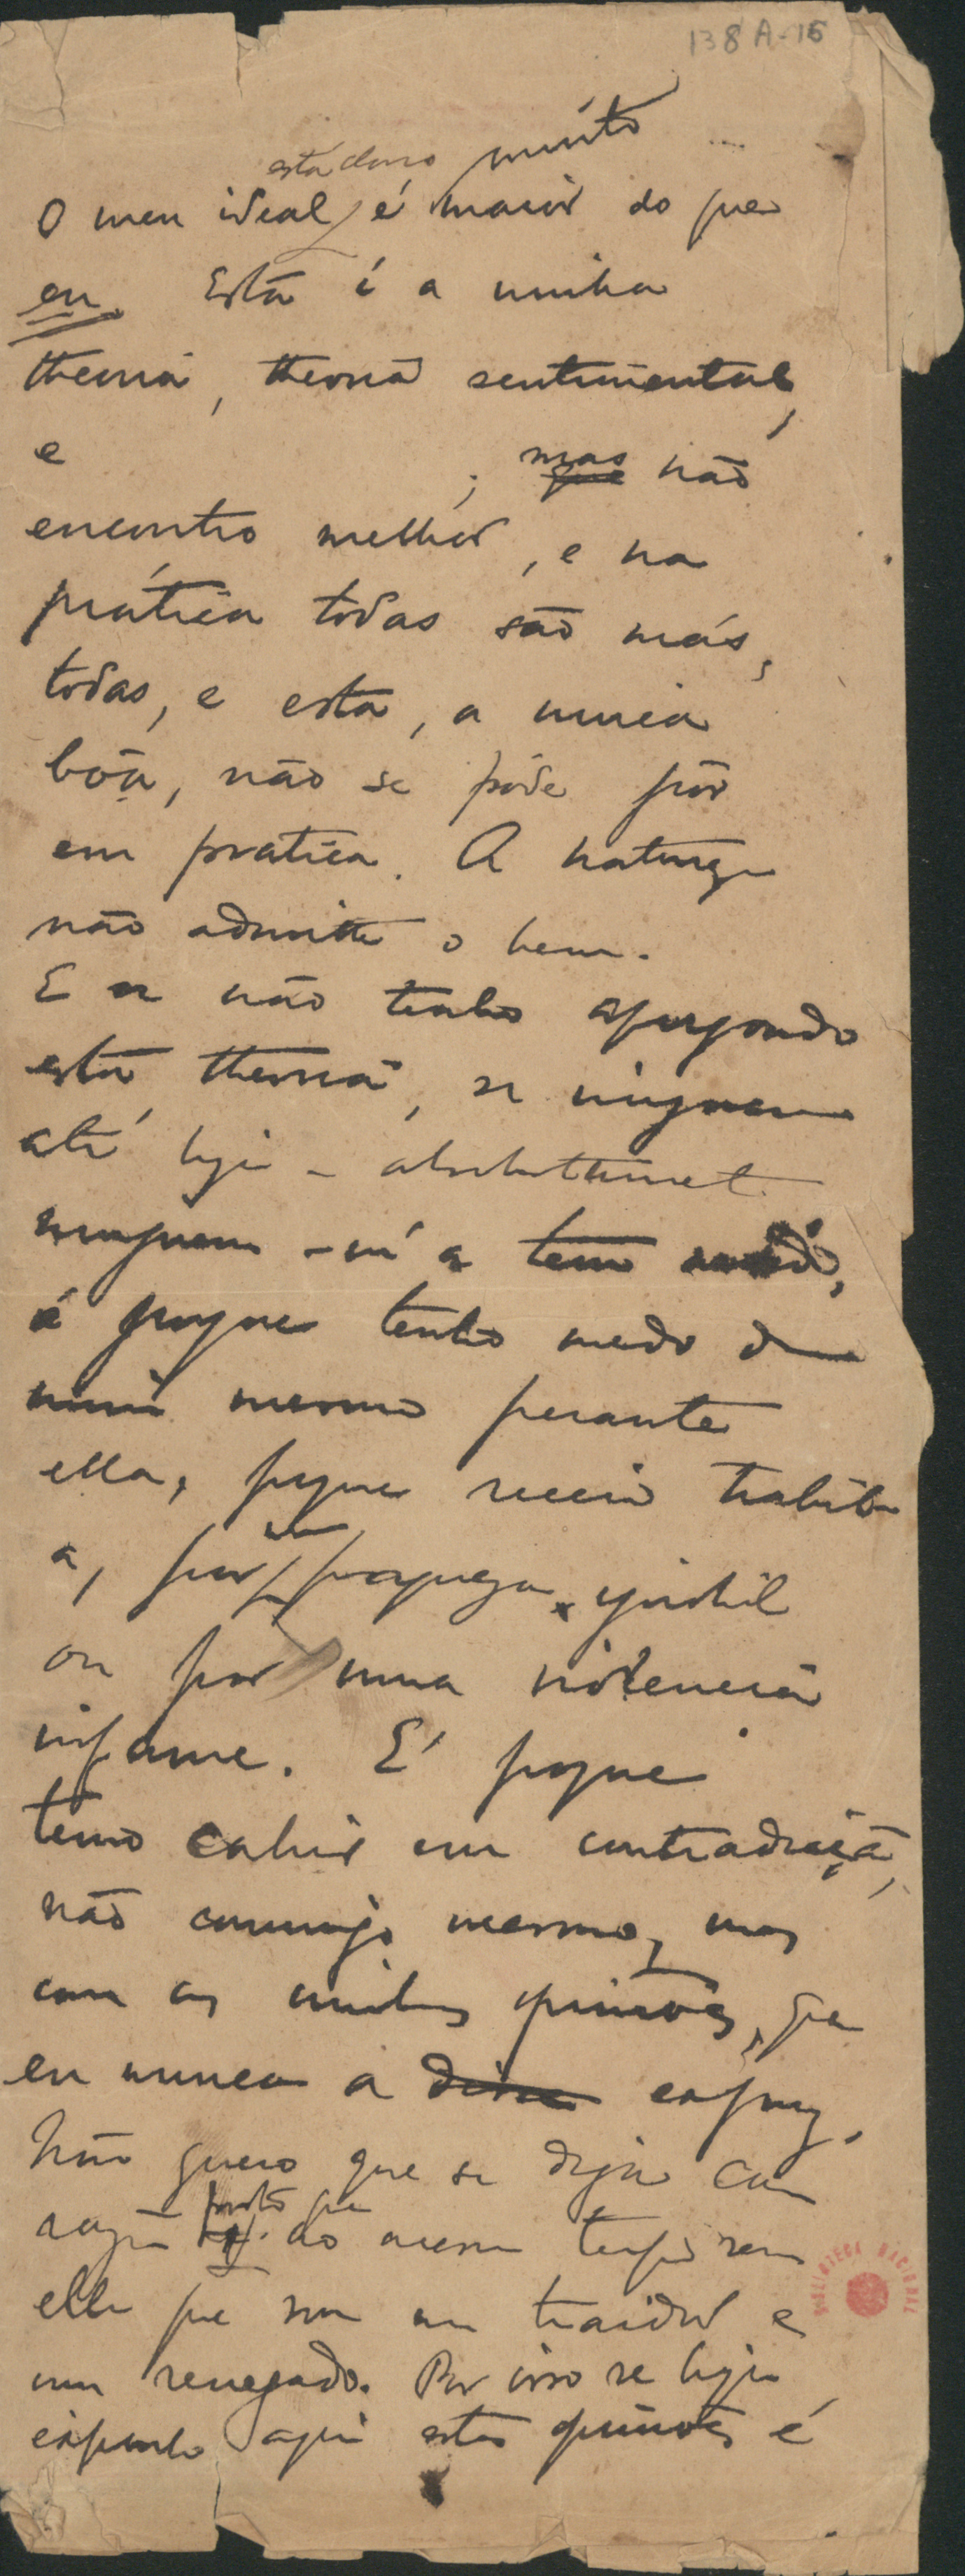 138A-15
está claro muito
O meu ideal é maior do que
eu. Esta é a minha
theoria, theoria sentimental,
e ; mas não
encontro melhor, e na
prática todas são más,
todas, e esta, a unica
bôa, não se póde pôr
em pratica. A natureza
não admitte o bem.
E se não tenho apregoado
esta theoria, se ninguem
até hoje - absolutamente
ninguem - m'a tem ouvido,
é porque tenho medo de
mim mesmo perante
ella, porque receio trahil-
a, por uma fraqueza
ou por uma violencia
infame. E' porque
temo cahir em contradicção,
não commigo mesmo, mas
com as minhas opiniões, que
eu nunca a disse expuz.
Não quero que se diga com
razão posto que ao mesmo tempo sem
ella que sou um traidor e
um renegado. Por isso se hoje
exponho aqui estas opiniões é
BIBLIOTECA NACIONAL